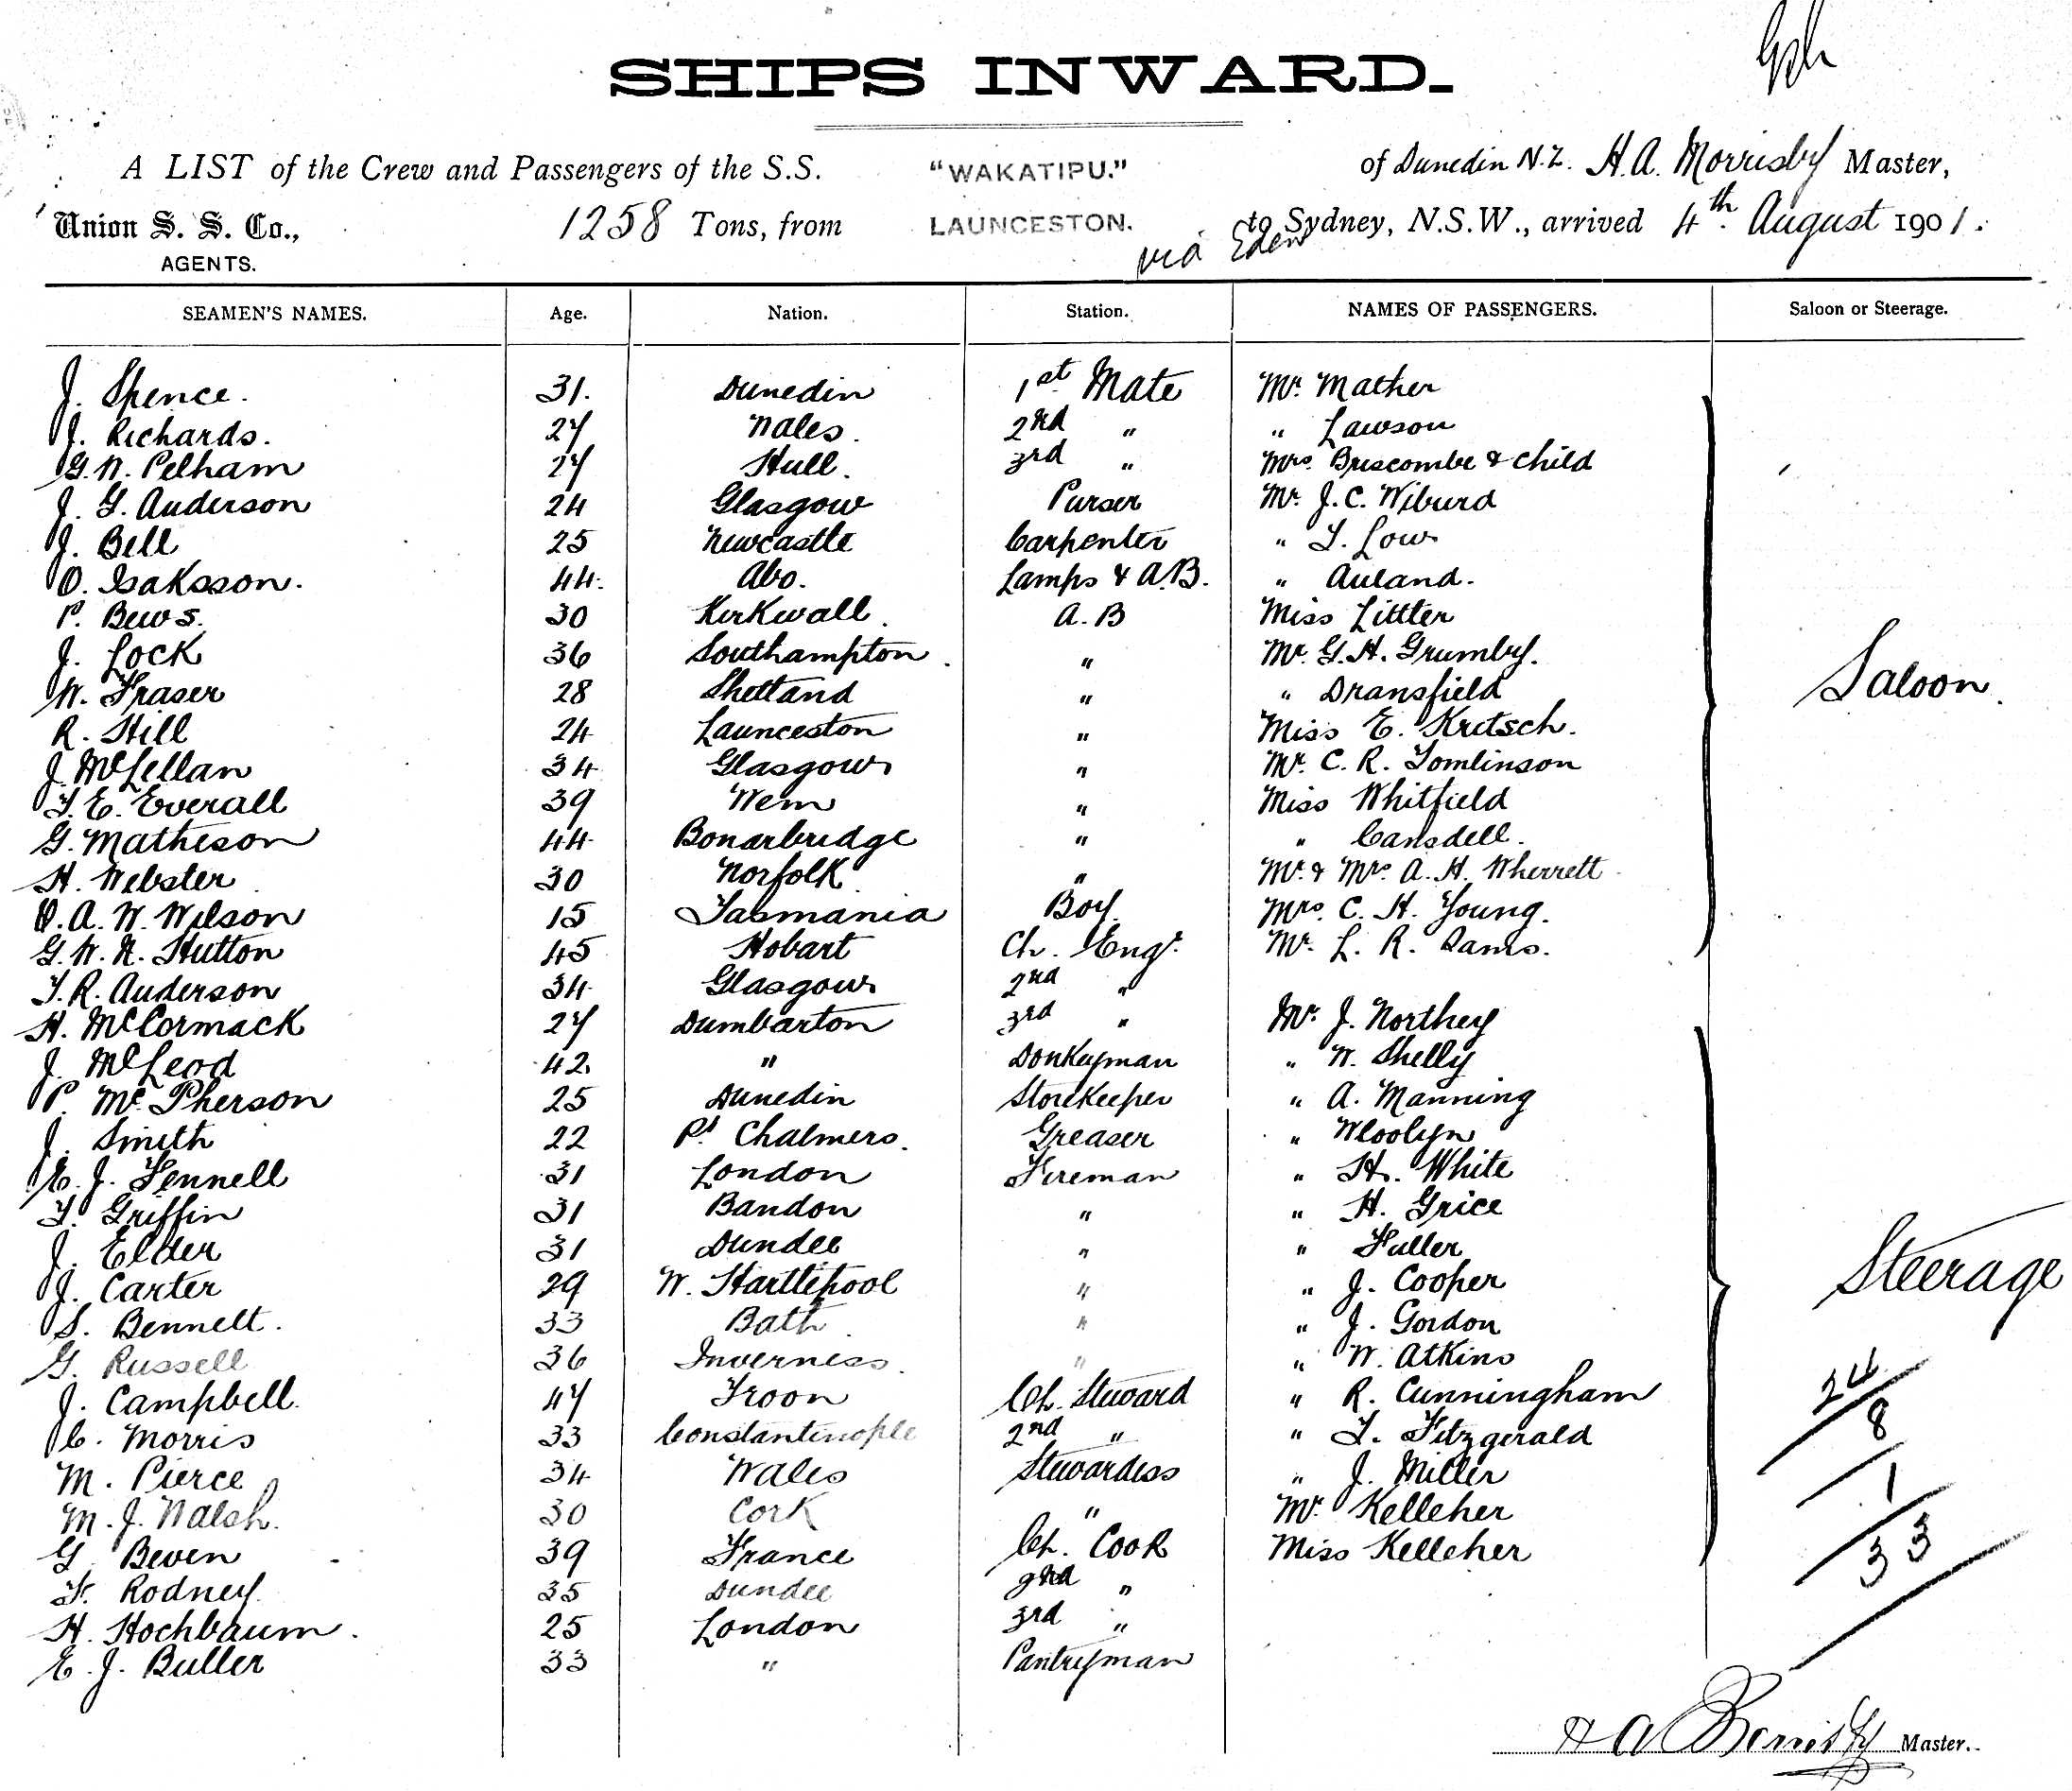 SHIPS INWARD.
A LIST of the Crew and Passengers of the S.S. "WAKATIPU." of Dunedin N.Z. H.A. Morrisby Master,
Union S. S. Co., 1258 Tons, from LAUNCESTON. to Sydney, N.S.W., arrived 4th August 1901.
AGENTS. via Eden
SEAMEN'S NAMES. Age. Nation. Station. NAMES OF PASSENGERS. Saloon or Steerage.
J. Spence. 31. Dunedin 1st Mate Mr. Mather
J. Richards. 27 Wales. 2nd " " Lawson
G.W. Pelham 27 Hull. 3rd " Mrs. Briscombe & Child
J. G. Anderson 24 Glasgow Purser Mr. J.C. Wiburd
J. Bell 25 Newcastle Carpenter " T. Low
O. Isaksson. 44. Abo. Lamps & A.B. " Auland.
P. Bews. 30 Kirkwall. A.B Miss Littler
J. Lock 36 Southampton. " Mr. G.H. Grumby.
W. Fraser 28 Shetland " " Dransfield
R. Hill 24 Launceston " Miss E. Kretsch.
J. McLellan 34 Glasgow " Mr. C. R. Tomlinson
T. E. Everall 39 Wem " Miss Whitfield
G. Matheson 44 Bonarbridge " " Cansdell.
H. Webster 30 Norfolk " Mr. & Mrs. A. H. Wherrett
O. A. W. Wilson 15 Tasmania Boy. Mrs. C. H. Young.
G. W. N. Hutton 45 Hobart Ch. Engr. Mr. L. R. Dams.
Saloon.
T. R. Anderson 34 Glasgow 2nd "
H. McCormack 27 Dumbarton 3rd " Mr. J. Northey
J. McLeod 42. " Donkeyman " W. Shelly
P. McPherson 25 Dunedin Storekeeper " A. Manning
J. Smith 22 Pt Chalmers. Greaser " Woolyn
E. J. Fennell 31 London Fireman " H. White
T. Griffin 31 Bandon " " H. Grice
J. Elder 31 Dundee " " Fuller
J. Carter 29 W. Hartlepool " " J. Cooper
Steerage
S. Bennett. 33 Bath " " J. Gordon
G. Russell 36 Inverness. " " W. Atkins
J. Campbell. 47 Troon Ch. Steward " R. Cunningham 24
C. Morris 33 Constantinople 2nd " " T. Fitzgerald 8
M. Pierce 34 Wales Stewardess " J. Miller 1
M. J. Walsh. 30 Cork " Mr. Kelleher
G. Beven 39 France Ch. Cook Miss Kelleher 33
F. Rodney. 35 Dundee 2nd "
H. Hochbaum. 25 London 3rd "
E. J. Buller 33 " Pantryman
H A Morrisby Master.